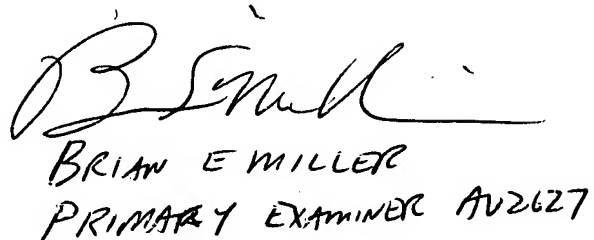 BRIAN E MILLER
PRIMARY EXAMINER AU2627